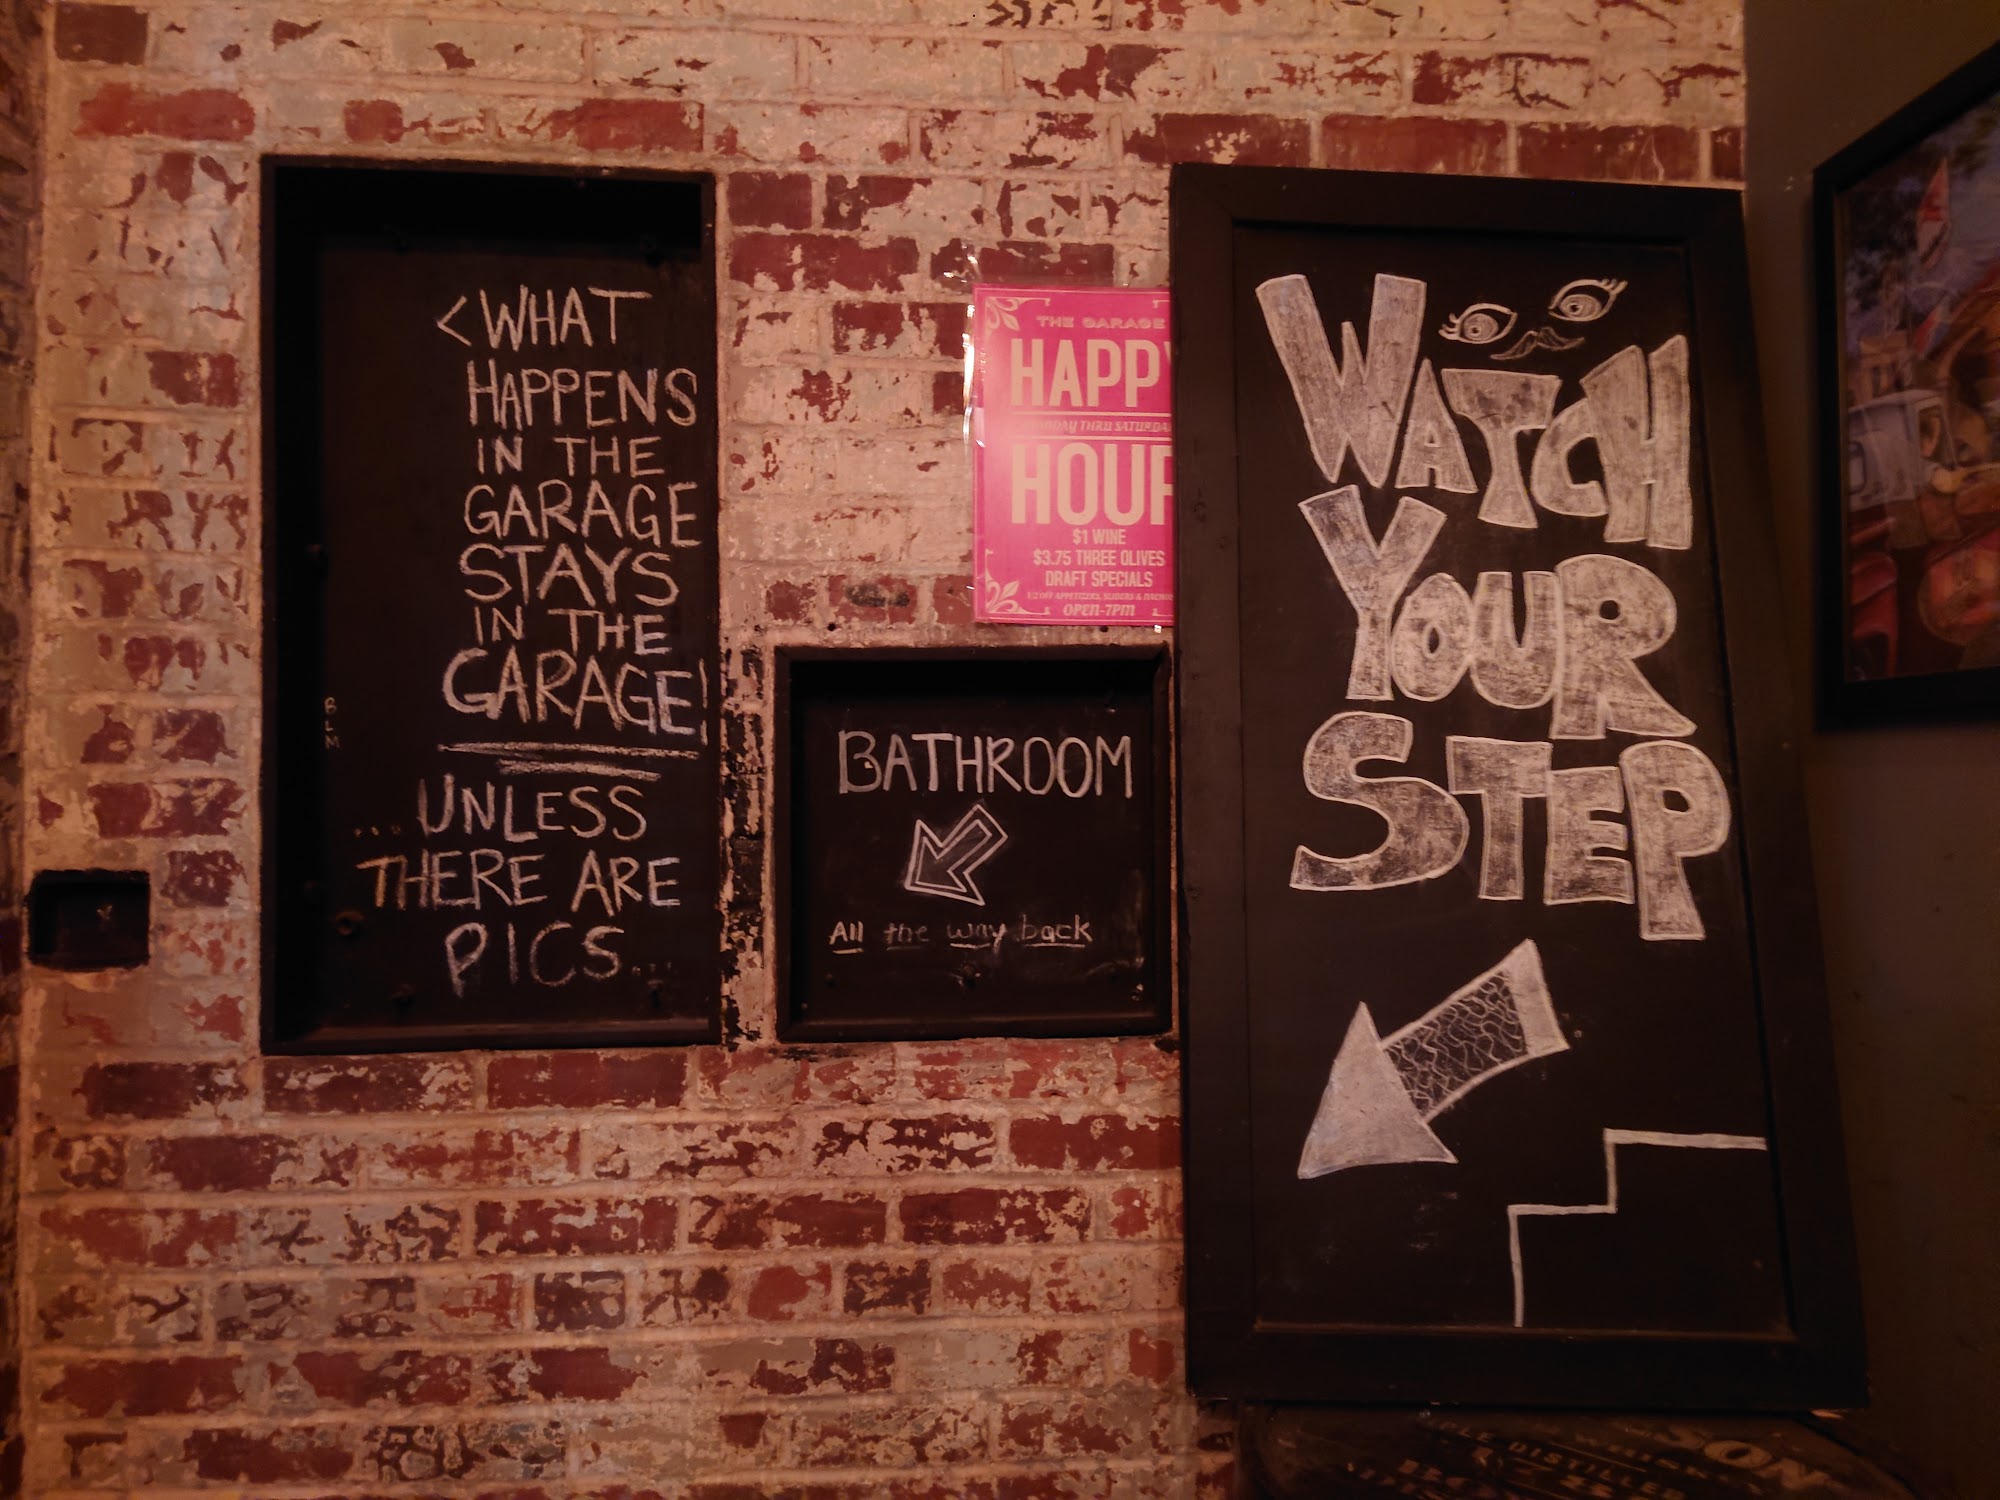 <WHAT
HAPPENS
IN THE
GARAGE
STAYS
IN THE
GARAGE!
...UNLESS
THERE ARE
PICS...
BLM
THE GARAGE
HAPPY
THRU SATURDAY
HOUR
$1 WINE
$3.75 THREE OLIVES
DRAFT SPECIALS
1/2 OFF APPETIZERS, SLIDERS &
OPEN-7PM
BATHROOM
All the way back
WATCH
YOUR
STEP